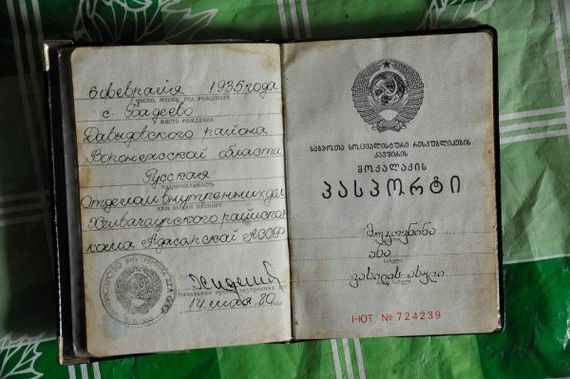 6 февраля 1935 года
ЧИСЛО, МЕСЯЦ, ГОД РОЖДЕНИЯ
с. Бадеево
МЕСТО РОЖДЕНИЯ
Давыдовского района
Воронежской области
Русская
НАЦИОНАЛЬНОСТЬ
Отделом внутренних дел
КЕМ ВЫДАН ПАСПОРТ
Хелвачаурского райиспол
кома Аджарской АССР
14 мая 80
საბჭოთა სოციალისტური რესპუბლიკების
კავშირის
მოქალაქის
პასპორტი
ანა
ვასილის ასული
I-ЮТ № 724239